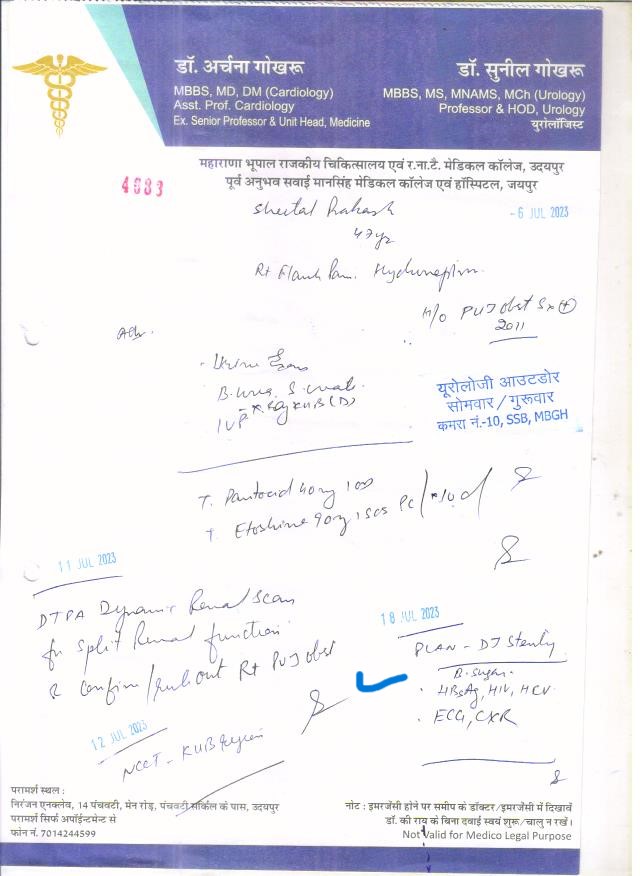 डॉ. अर्चना गोखरू
MBBS, MD, DM (Cardiology)
Asst. Prof. Cardiology
Ex. Senior Professor & Unit Head, Medicine
डॉ. सुनील गोखरू
MBBS, MS, MNAMS, MCh (Urology)
Professor & HOD, Urology
यूरोलॉजिस्ट
महाराणा भूपाल राजकीय चिकित्सालय एवं र.ना.टै. मेडिकल कॉलेज, उदयपुर
पूर्व अनुभव सवाई मानसिंह मेडिकल कॉलेज एवं हॉस्पिटल, जयपुर
4683
- 6 JUL 2023
Sheetal Prakash
47yr
Rt Flank Pain.
H/o PUJ Obst Sx (+)
2011
Adv.
B. Urea, S. Creat.
IVP
यूरोलॉजी आउटडोर
सोमवार / गुरूवार
कमरा नं.-10, SSB, MBGH
T. Pantocid 40mg 1 OD
T. Etoshine 90mg
11 JUL 2023
DTPA Dynamic Renal Scan
for Split Renal function
& Confirm/rule out Rt PUJ obst
12 JUL 2023
NCCT - KUB Region
18 JUL 2023
PLAN - DJ Stenting
B. Sugar
HBsAg, HIV, HCV
ECG, CXR
परामर्श स्थल :
निरंजन एनक्लेव, 14 पंचवटी, मेन रोड़, पंचवटी सर्किल के पास, उदयपुर
परामर्श सिर्फ अपॉईन्टमेन्ट से
फोन नं. 7014244599
नोट : इमरजेंसी होने पर समीप के डॉक्टर/इमरजेंसी में दिखावें
डॉ. की राय के बिना दवाई स्वयं शुरू/चालु न रखें।
Not Valid for Medico Legal Purpose